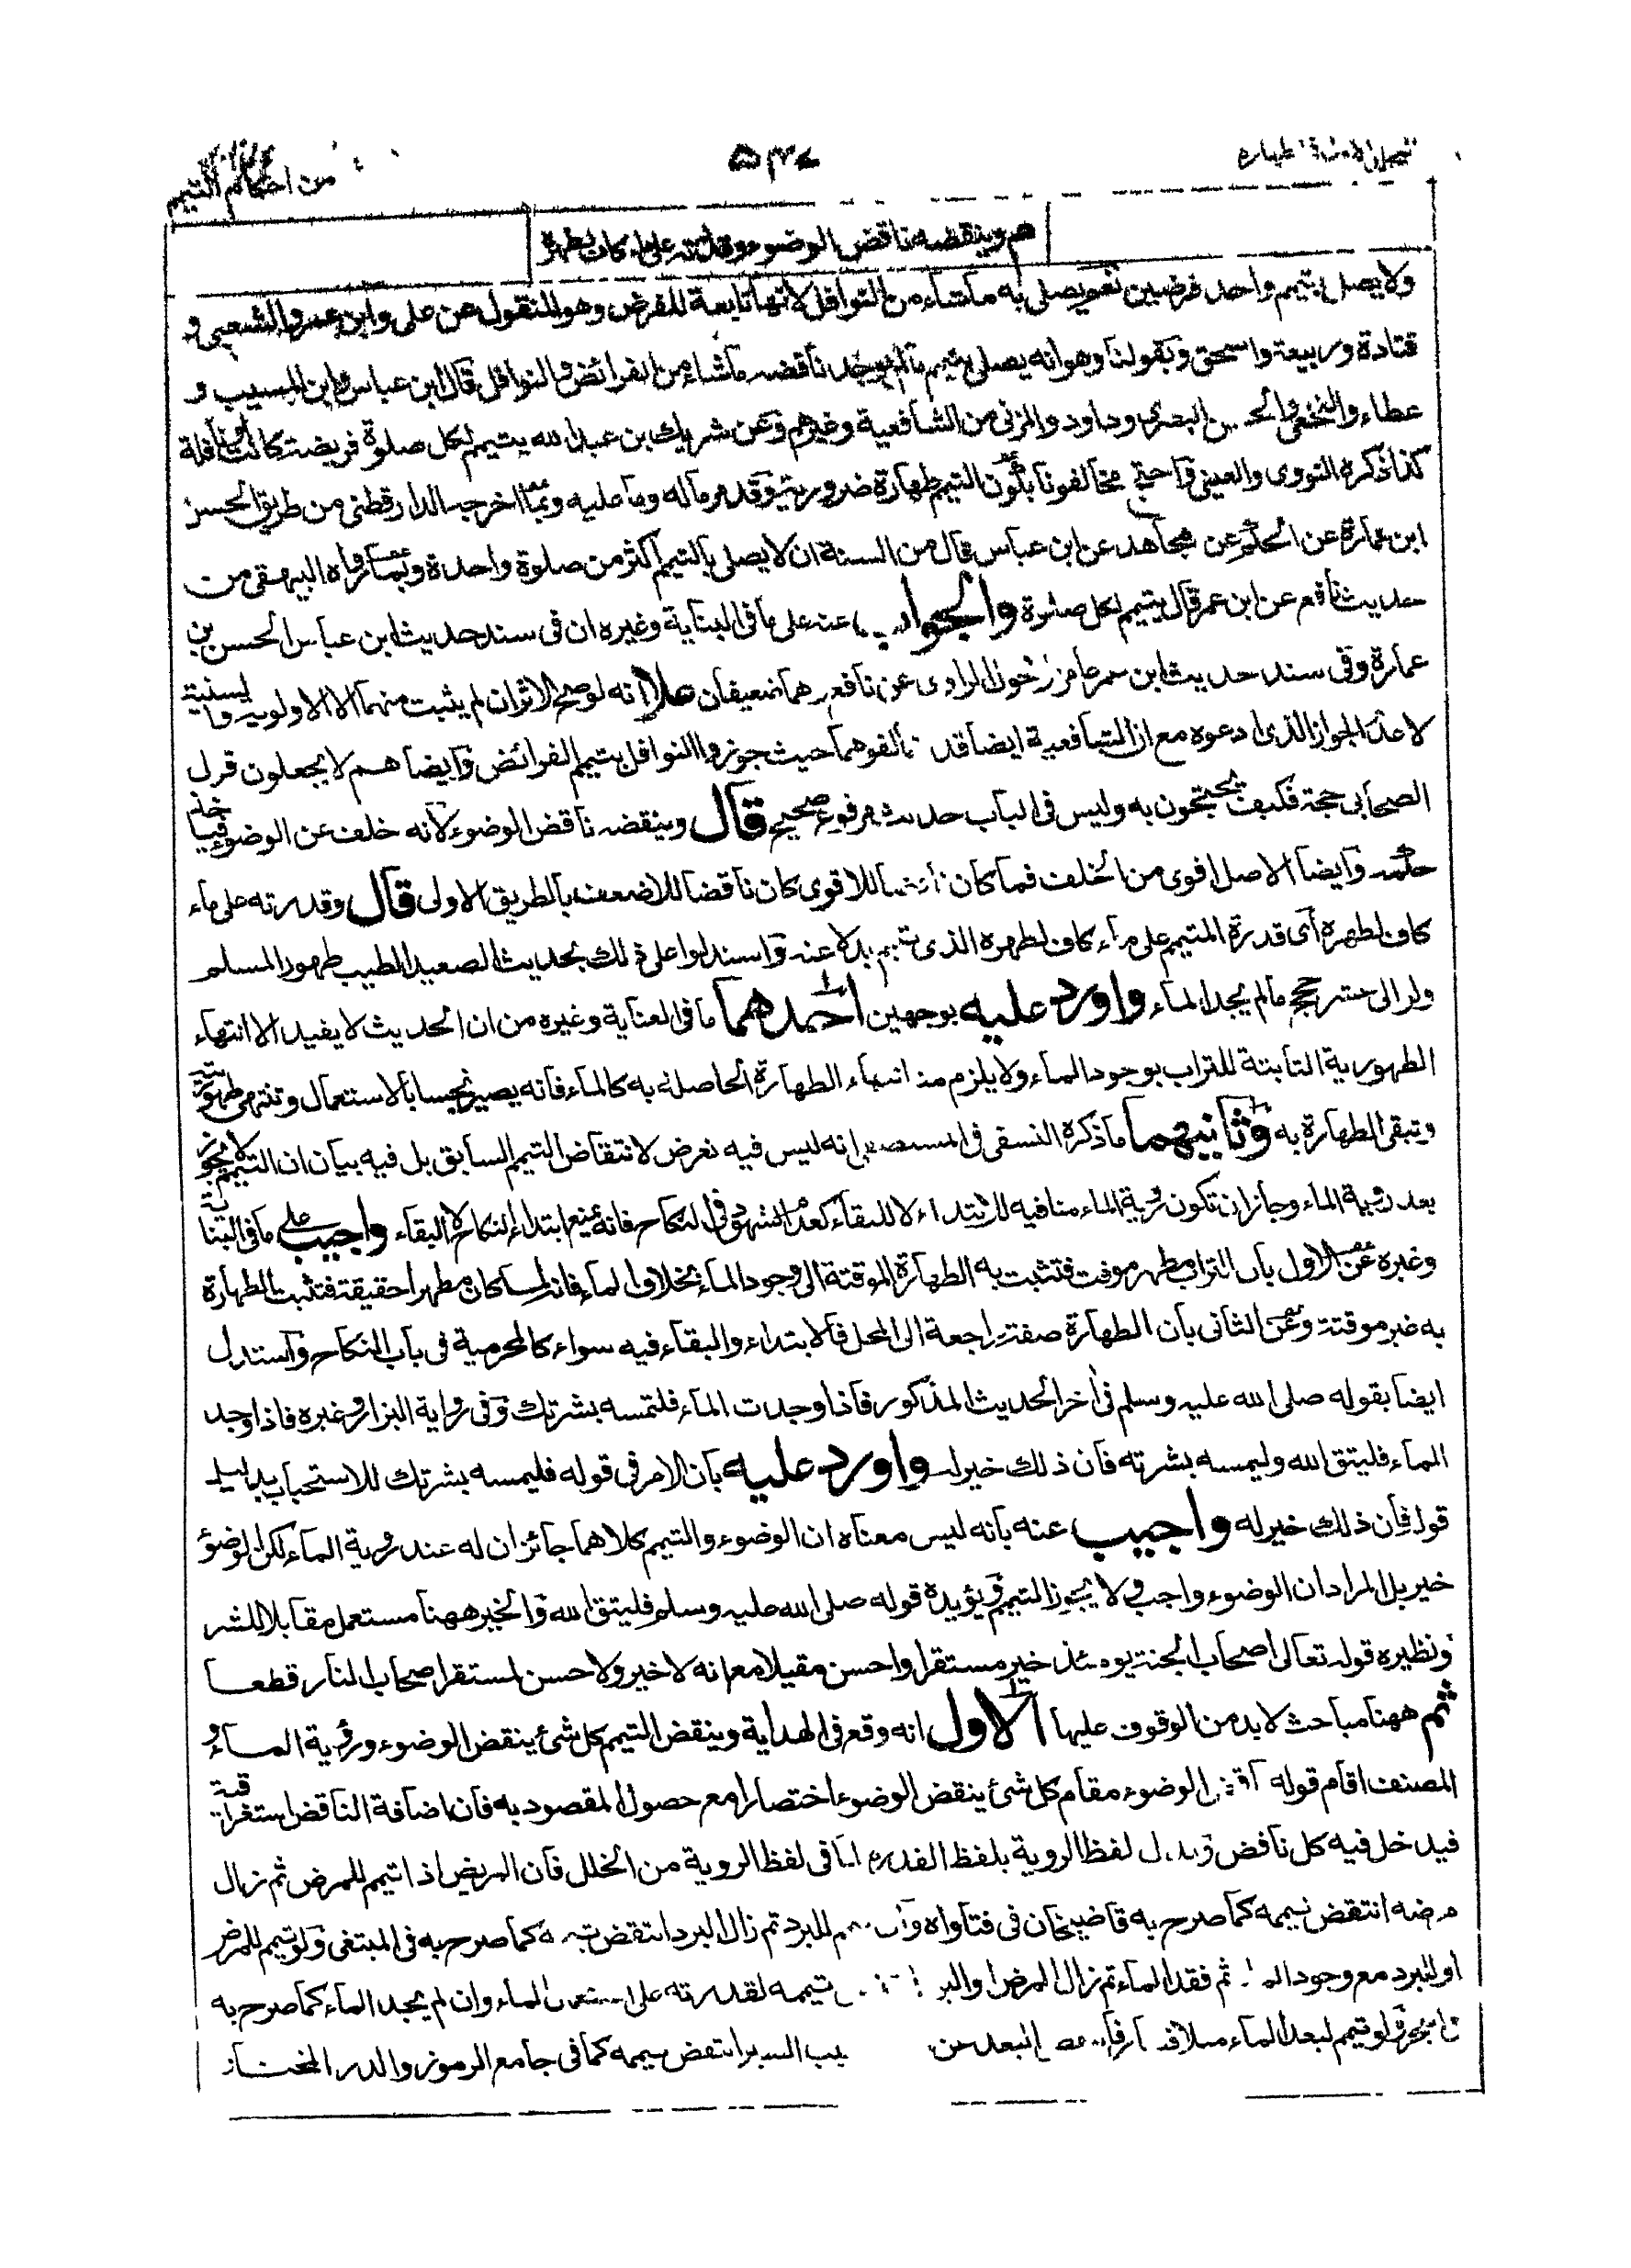 من احكام التيمم
۵۳۷
م وينقضه ناقض الوضوء وقدرته على ماء كاف لطهره
ولا يصلي بتيمم واحد فرضين نعم يصلي به ما شاء من النوافل لانها تابعة للفرض وهو المنقول عن علي وابن عمر والشعبي و
قتادة وربيعة واسحق وبقولنا وهو انه يصلي بتيمم ما لم يوجد ناقضه ما شاء من الفرائض والنوافل قال ابن عباس وابن المسيب و
عطاء والنخعي والحسن البصري وداود والمزني من الشافعية وغيرهم وعن شريك بن عبد الله يتيمم لكل صلوة فريضة كانت او نافلة
كذا ذكره النووي والعيني واحتج مخالفونا بكون التيمم طهارة ضرورية وقد مر ما له وما عليه وبما اخرجه الدارقطني من طريق الحسن
ابن عمارة عن الحكم عن مجاهد عن ابن عباس قال من السنة ان لا يصلي بالتيمم اكثر من صلوة واحدة وبما رواه البيهقي من
حديث نافع عن ابن عمر قال يتيمم لكل صلوة والجواب عنه على ما في البناية وغيره ان في سند حديث ابن عباس الحسن بن
عمارة وفي سند حديث ابن عمر عامر الاحول الراوي عن نافع وهما ضعيفان علا انه لو صح الاثران لم يثبت منهما الا الاولوية والسنية
لا عدم الجواز الذي ادعوه مع ان الشافعية ايضا قد خالفوهما حيث جوزوا النوافل بتيمم الفرائض وايضا هم لا يجعلون قول
الصحابي حجة فكيف يحتجون به وليس في الباب حديث مرفوع صحيح قال وينقضه ناقض الوضوء لانه خلف عن الوضوء فياخذ
حكمه وايضا الاصل اقوى من الخلف فما كان ناقضا للاقوى كان ناقضا للاضعف بالطريق الاولى قال وقدرته على ماء
كاف لطهره اى قدرة المتيمم على ماء كاف لطهره الذي تيمم بدلا عنه واستدلوا على ذلك بحديث الصعيد الطيب طهور المسلم
ولو الى عشر حجج ما لم يجد الماء واورد عليه بوجهين احدهما ما في العناية وغيره من ان الحديث لا يفيد الا انتهاء
الطهورية الثابتة للتراب بوجود الماء ولا يلزم منه انتهاء الطهارة الحاصلة به كالماء فانه يصير نجسا بالاستعمال وتنتهي طهوريته
وتبقى الطهارة به وثانيهما ما ذكره النسفي في المستصفى انه ليس فيه تعرض لانتقاض التيمم السابق بل فيه بيان ان التيمم لا يجوز
بعد روية الماء وجاز ان تكون روية الماء منافيه للابتداء لا للبقاء كعدم الشهود في النكاح فانه يمنع ابتداء النكاح لا البقاء واجيب على ما في البناية
وغيره عن الاول بان التراب مطهر موقت فتثبت به الطهارة الموقتة الى وجود الماء بخلاف الماء فانه لما كان مطهرا حقيقة فتثبت الطهارة
به غير موقتة وعن الثاني بان الطهارة صفة راجعة الى المحل فالابتداء والبقاء فيه سواء كالمحرمية في باب النكاح واستدل
ايضا بقوله صلى الله عليه وسلم في اخر الحديث المذكور فاذا وجدت الماء فلتمسه بشرتك وفي رواية البزار وغيره فاذا وجد
الماء فليتق الله وليمسه بشرته فان ذلك خير له واورد عليه بان الامر في قوله فليمسه بشرتك للاستحباب بدليل
قوله فان ذلك خير له واجيب عنه بانه ليس معناه ان الوضوء والتيمم كلاهما جائزان له عند روية الماء لكن الوضوء
خير بل المراد ان الوضوء واجب ولا يجوز التيمم ويؤيده قوله صلى الله عليه وسلم فليتق الله والخير ههنا مستعمل مقابلا للشر
ونظيره قوله تعالى اصحاب الجنة يومئذ خير مستقرا واحسن مقيلا مع انه لا خير ولا حسن لمستقر اصحاب النار قطعا
ثم ههنا مباحث لا بد من الوقوف عليها الاول انه وقع في الهداية وينقض التيمم كل شئ ينقض الوضوء ورؤية الماء و
المصنف اقام قوله ناقض الوضوء مقام كل شئ ينقض الوضوء اختصارا مع حصول المقصود به فان اضافة الناقض استغراقية
فيدخل فيه كل ناقض وبدل لفظ الروية بلفظ القدرة لما في لفظ الروية من الخلل فان المريض اذا تيمم للمرض ثم زال
مرضه انتقض تيممه كما صرح به قاضيخان في فتاواه وان تيمم للبرد ثم زال البرد انتقض تيممه كما صرح به في المبتغى ولو تيمم للمرض
او للبرد مع وجود الماء ثم فقد الماء ثم زال المرض او البرد تيممه لقدرته على استعمال الماء وان لم يجد الماء كما صرح به
لو تيمم لبعد الماء ميلا البعد عن السير انتقض تيممه كما في جامع الرموز والدر المختار